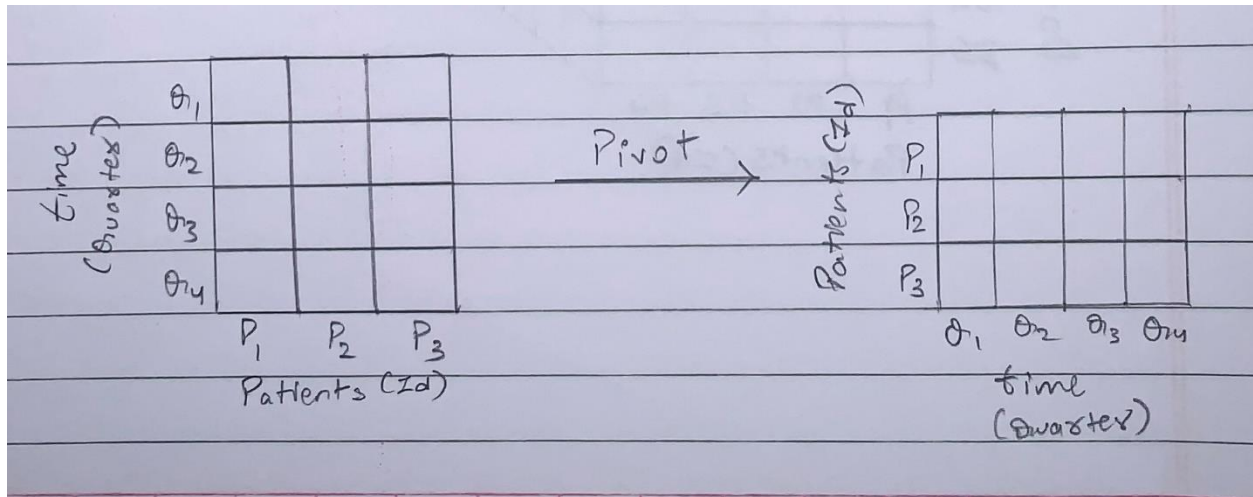 time
(Quarter)
Q1
Q2
Q3
Q4
P1 P2 P3
Patients (Id)
Pivot
Patients (Id)
P1
P2
P3
Q1 Q2 Q3 Q4
time
(Quarter)